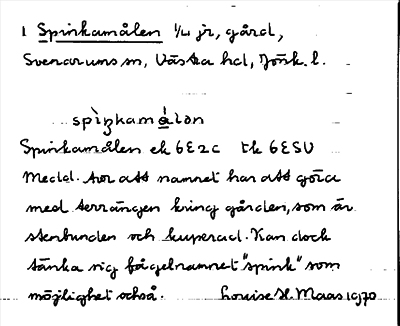 1 Spinkamålen 1/4 jr, gård,
Svenarums sn, Västra hd, Jönk. l.
spìŋkamá̊lən
Spinkamålen ek 6E2c tk 6ESV
Meddel. tror att namnet har att göra
med terrängen kring gården, som är
stenbunden och kuperad. Kan dock
tänka sig fågelnamnet "spink" som
möjlighet också. Louise H. Maas 1970